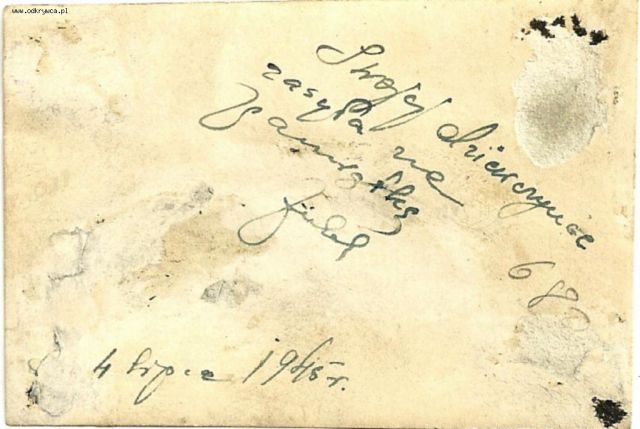 www.odkrywca.pl
Swojej dziewczynie
zasyła na
Pamiątkę
4 lipca 1945r.